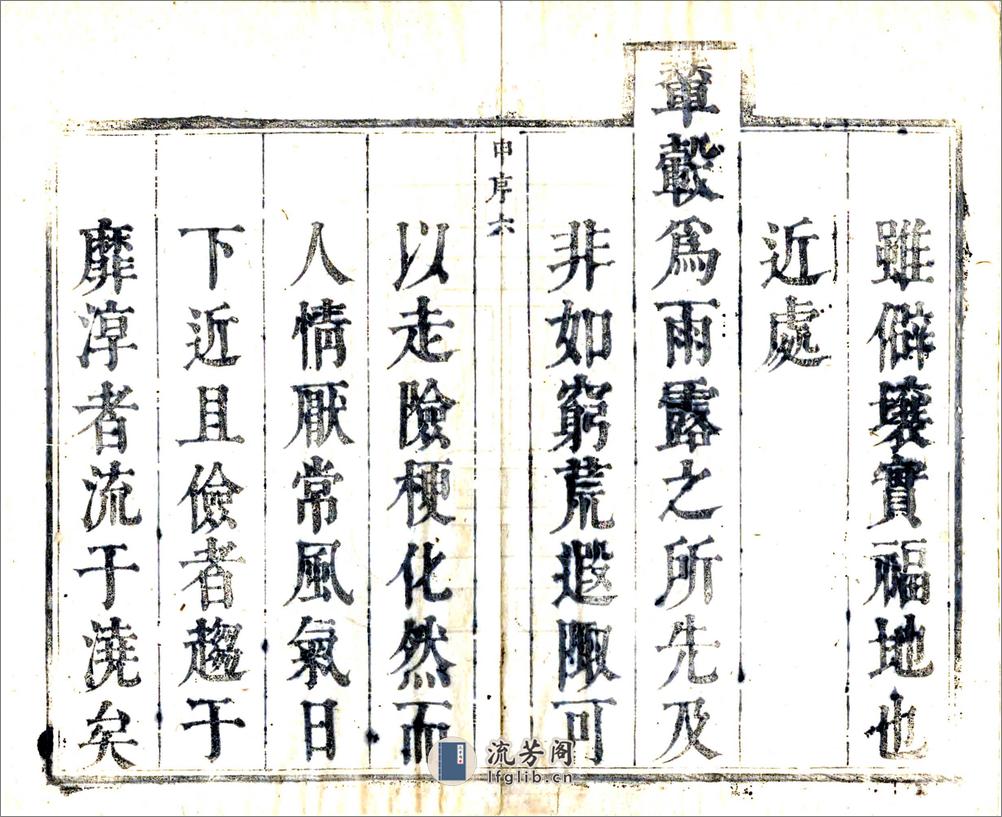 雖僻壤實福地也
近處
輦轂爲雨露之所先及
非如窮荒遐陬可
申序六
以走險梗化然而
人情厭常風氣日
下近且儉者趨于
靡淳者流于澆矣
流芳阁
lfglib.cn